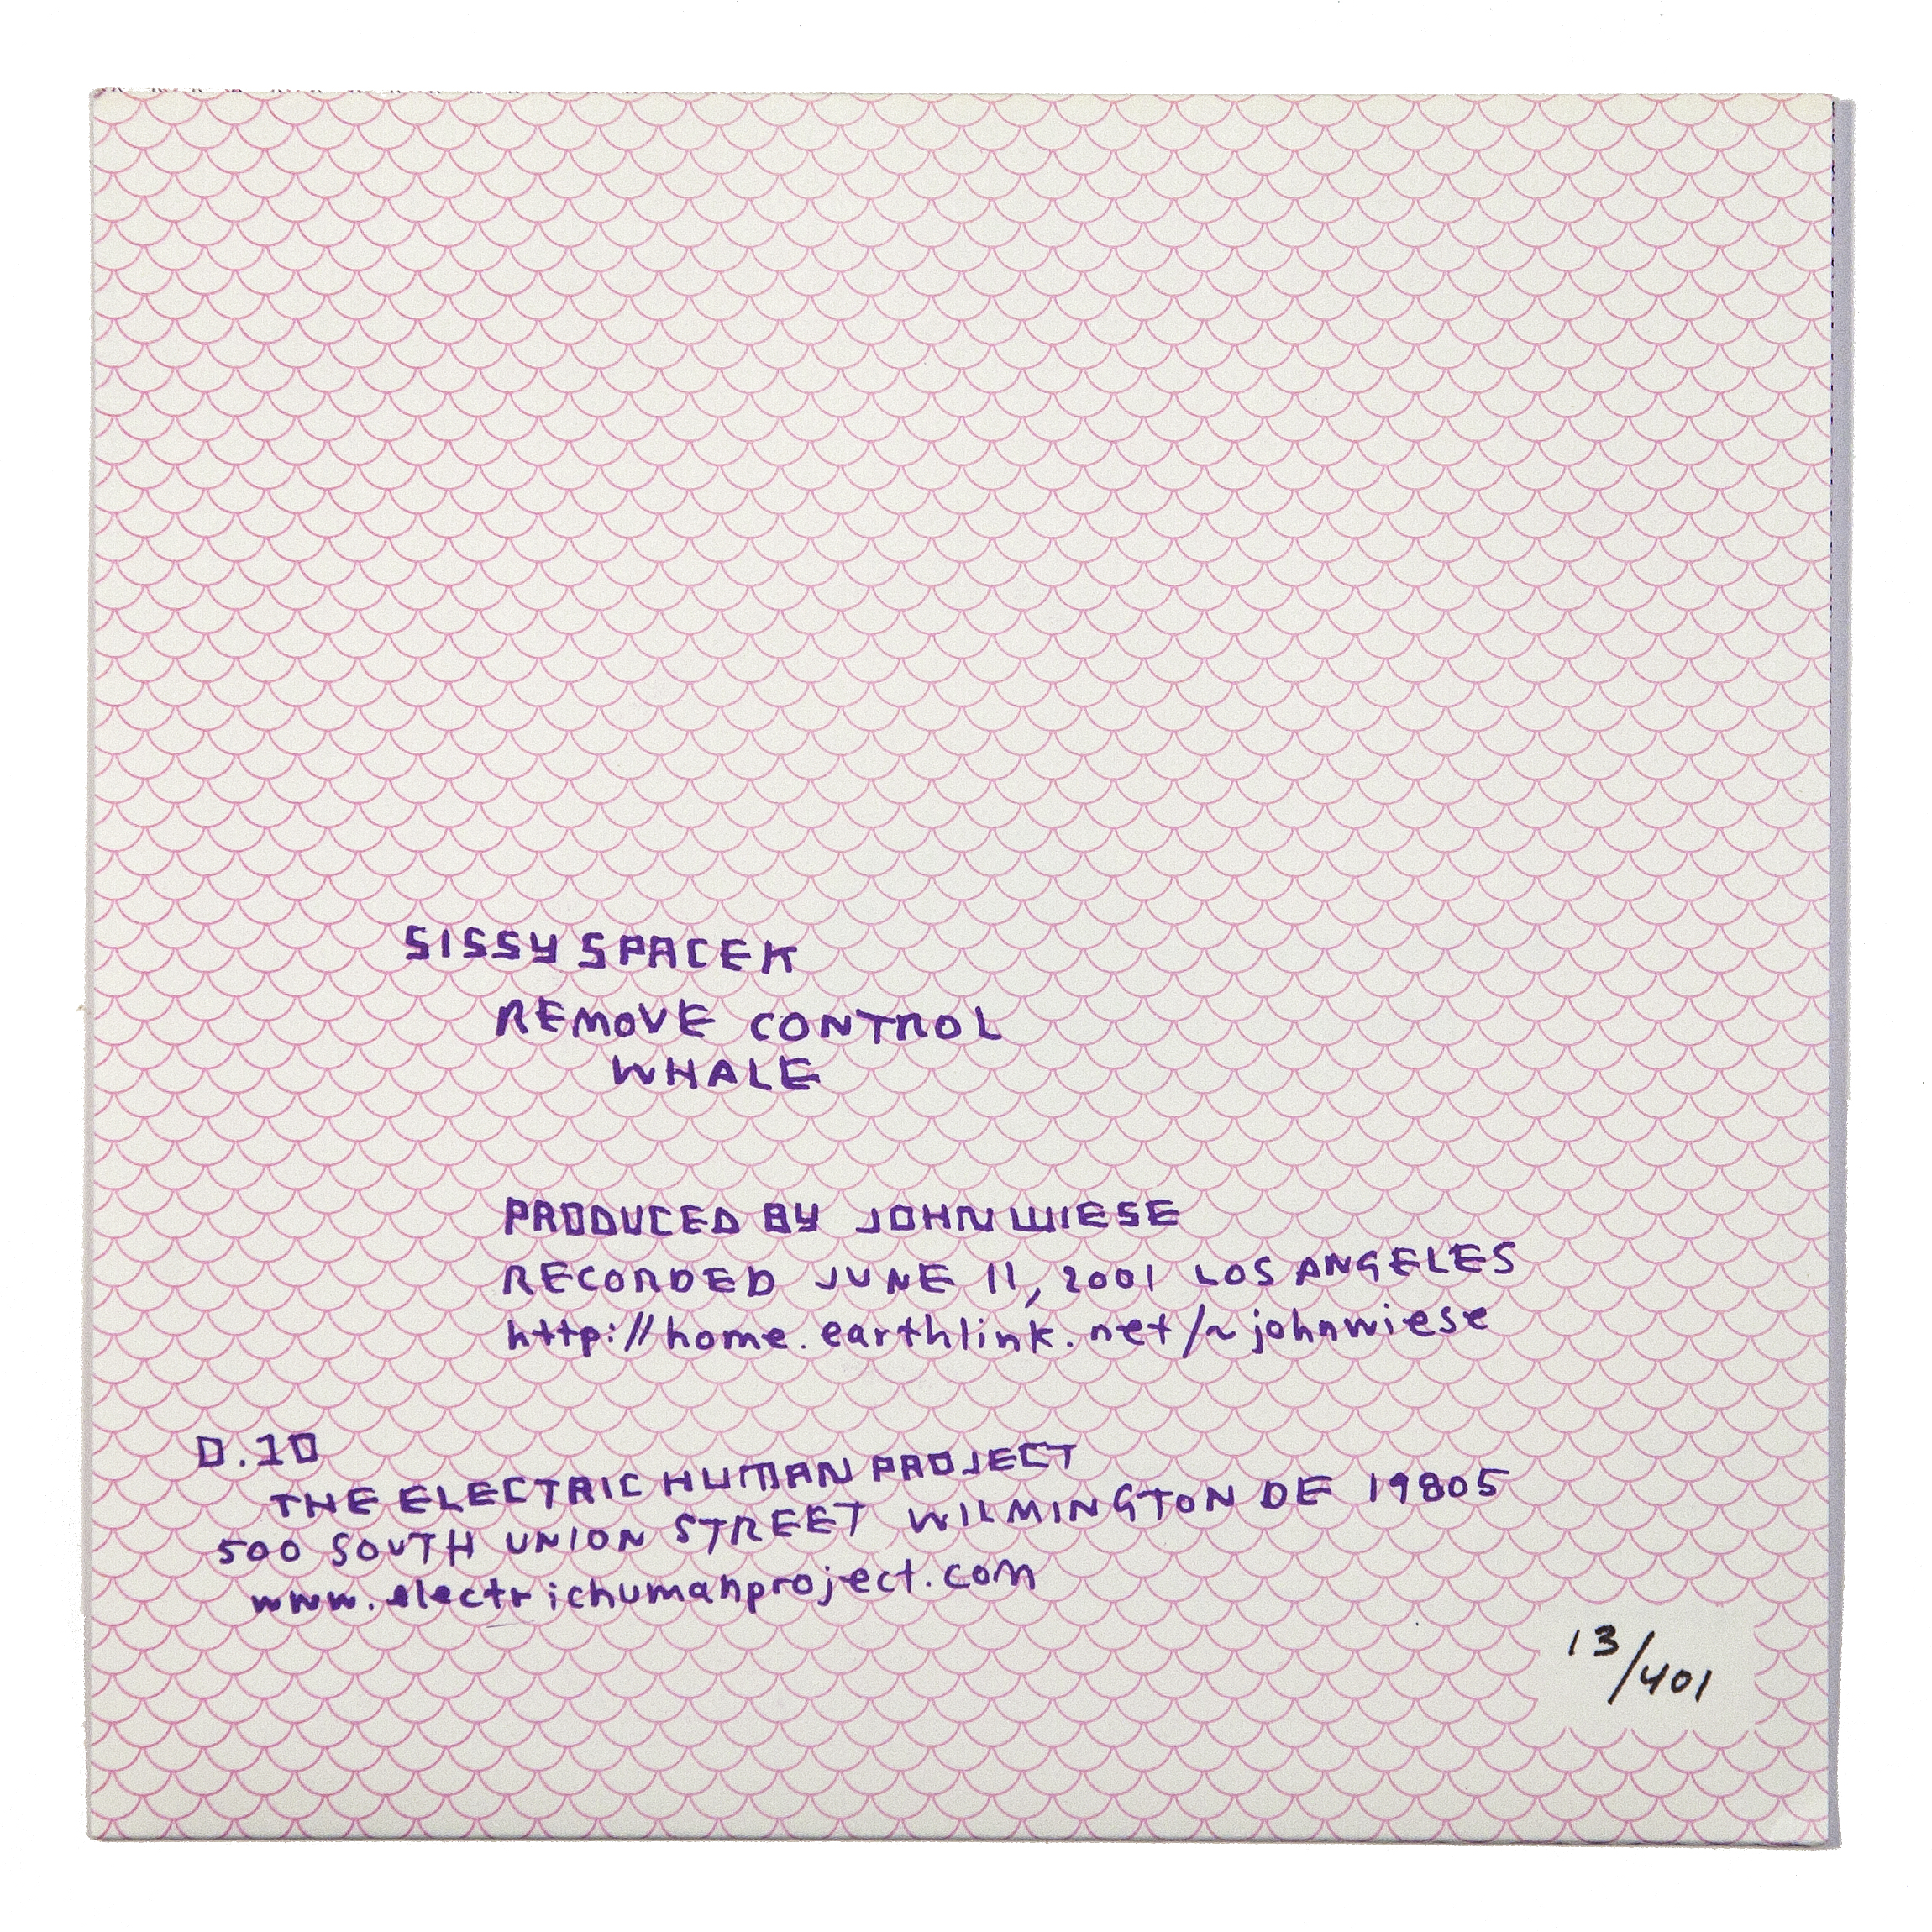 SISSY SPACEK
REMOVE CONTROL
WHALE
PRODUCED BY JOHN WIESE
RECORDED JUNE 11, 2001 LOS ANGELES
http://home.earthlink.net/~johnwiese
D.10
THE ELECTRIC HUMAN PROJECT
500 SOUTH UNION STREET WILMINGTON DE 19805
www.electrichumanproject.com
13/401